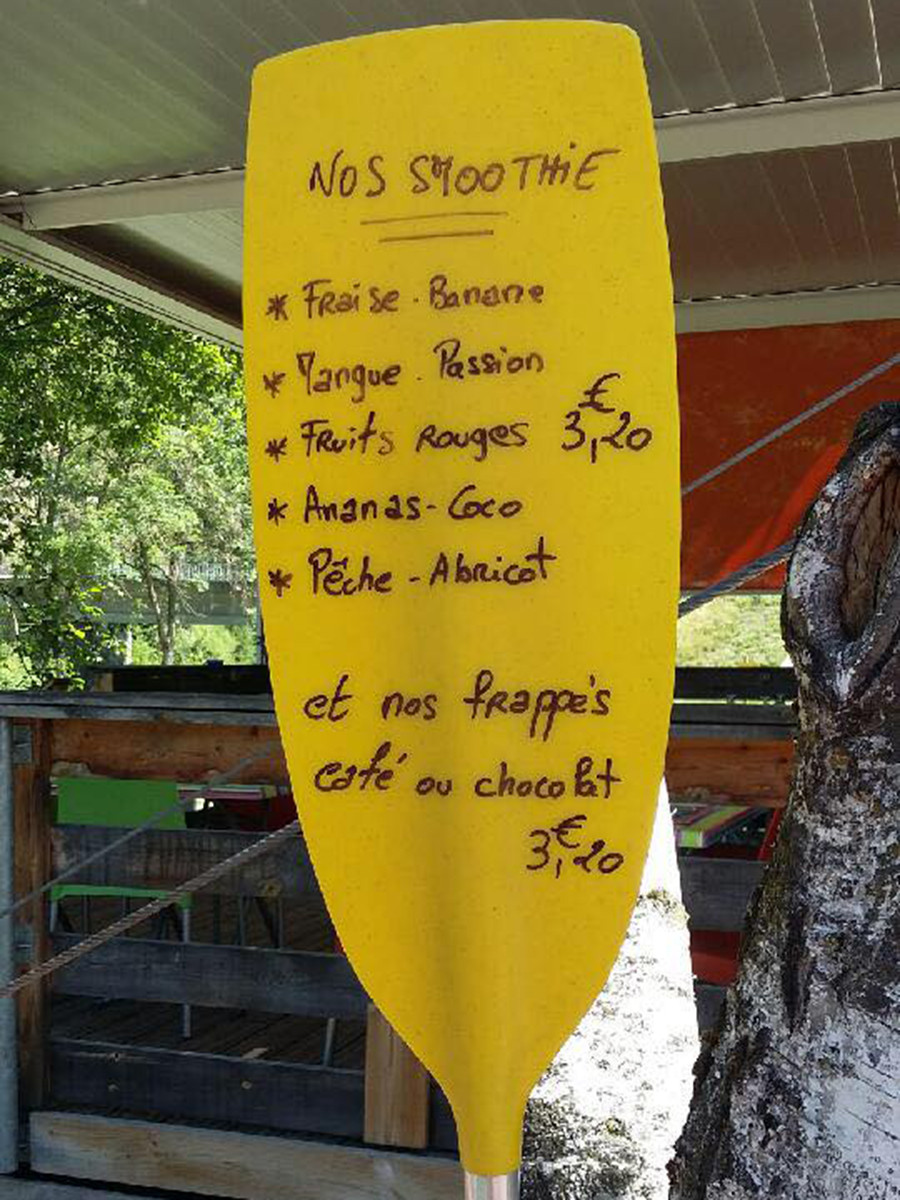 NOS SMOOTHiE
* Fraise - Banane
* Mangue - Passion
* Fruits Rouges 3,20 €
* Ananas - Coco
* Pêche - Abricot
et nos frappés
café ou chocolat
3,20 €